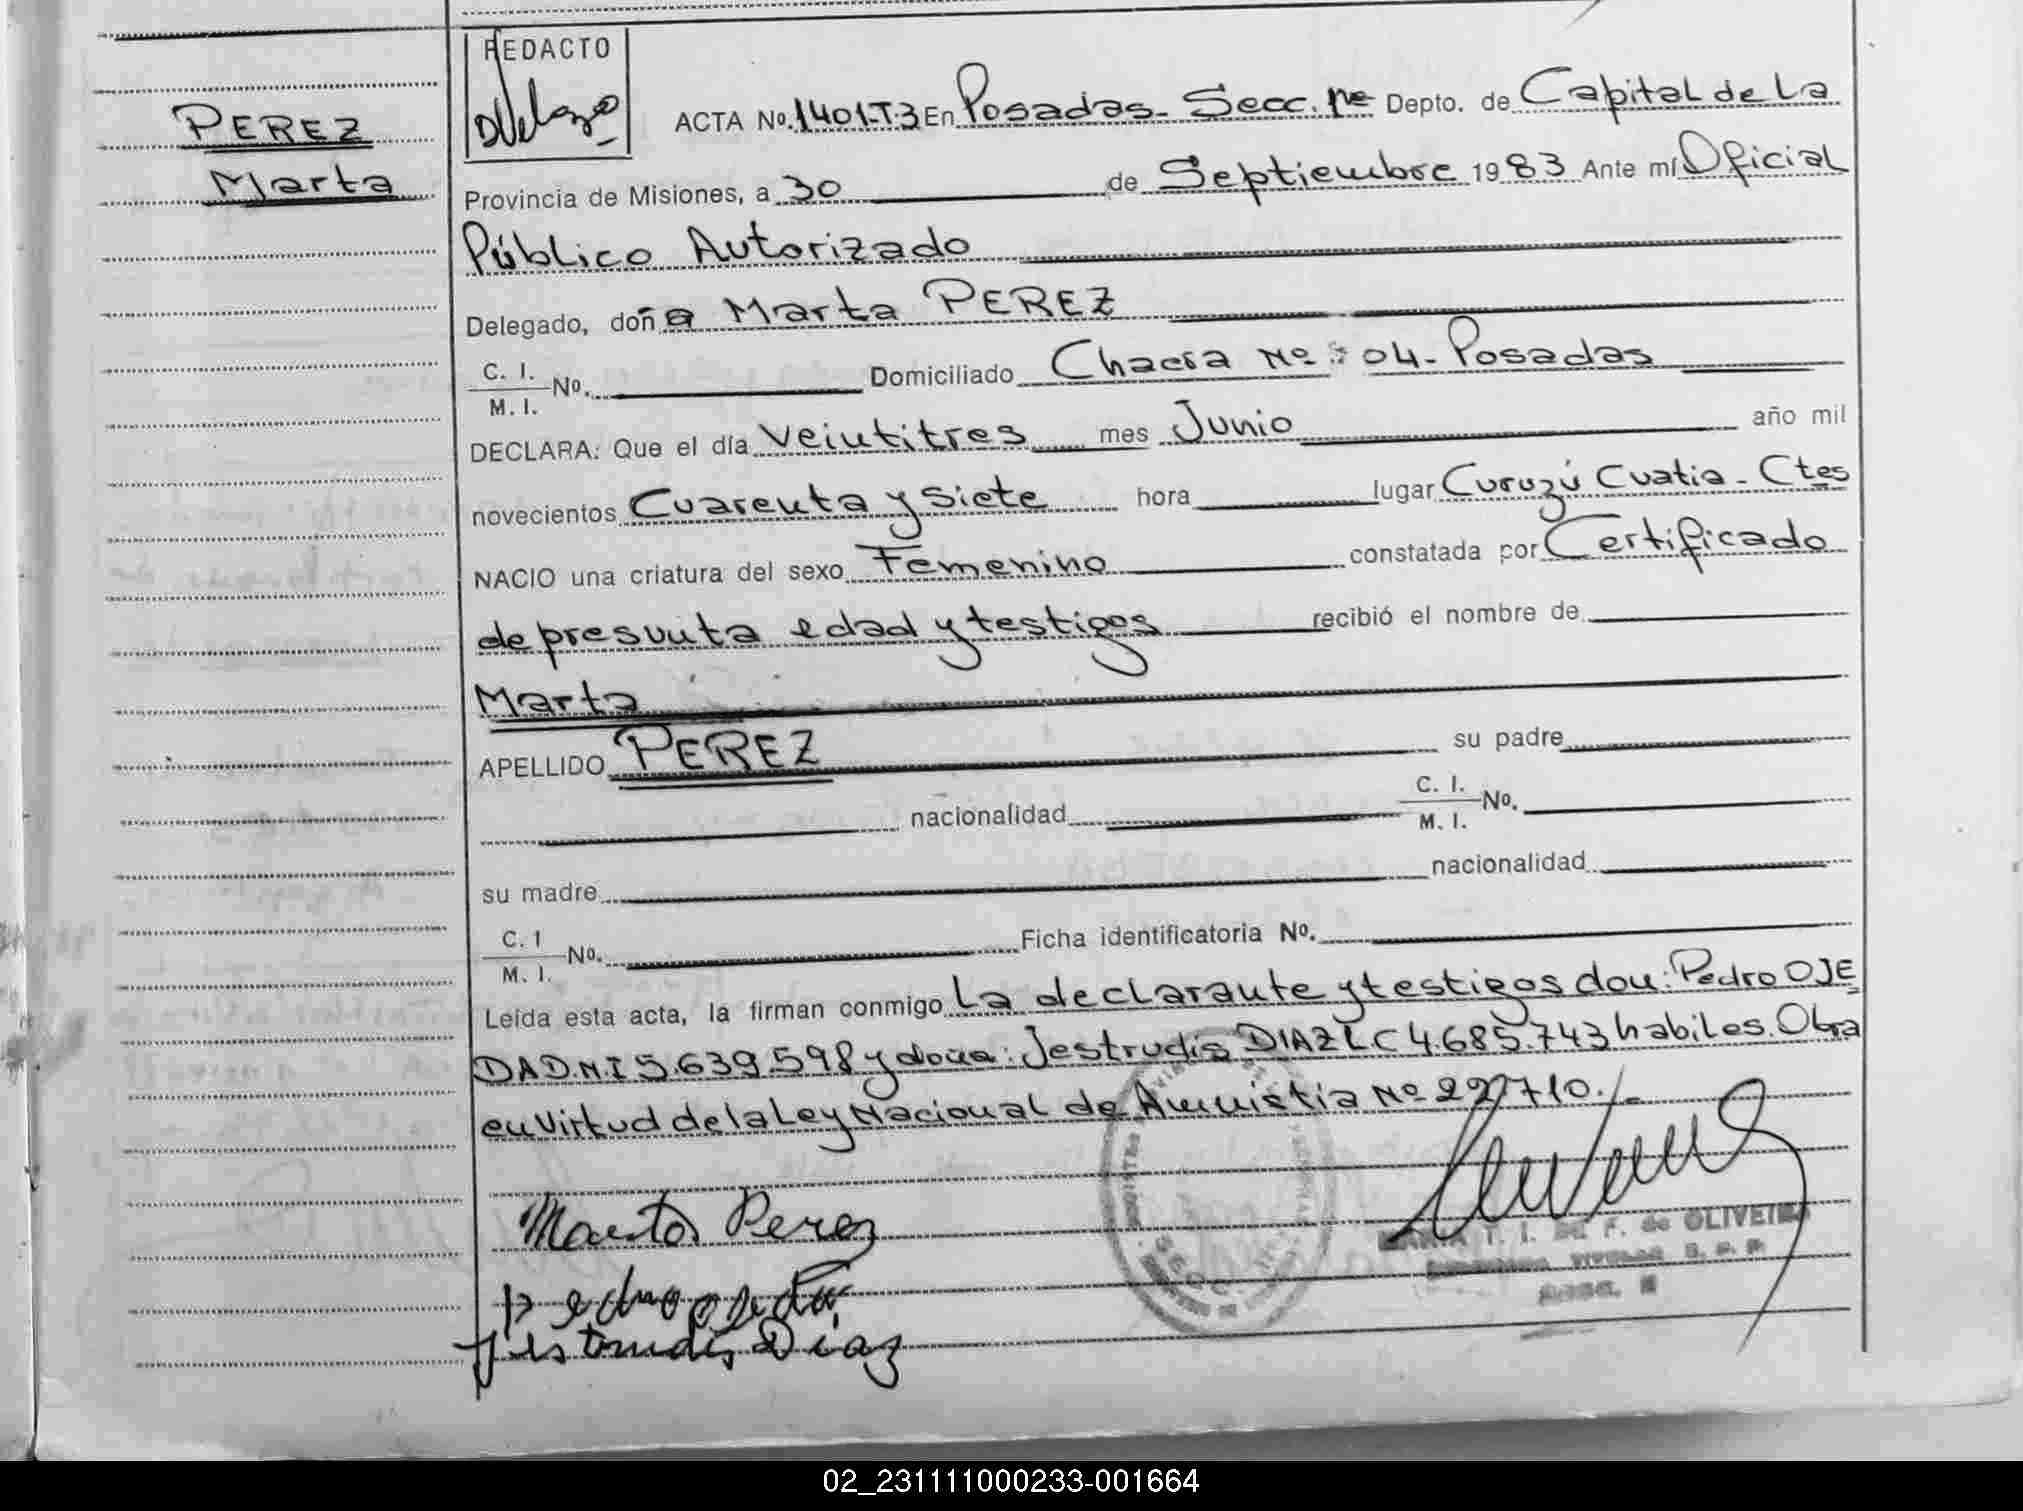 PEREZ
Marta
REDACTO
ACTA No. 1401-T.3 En Posadas- Secc. 1ra Depto. de Capital de La
Provincia de Misiones, a 30 de Septiembre 1983 Ante mí Oficial
Público Autorizado
Delegado, doña Marta PEREZ
C. I.
M. I. No. Domiciliado Chacra No 04- Posadas
DECLARA: Que el día Veintitres mes Junio año mil
novecientos Cuarenta y Siete hora lugar Curuzú Cuatia - Ctes
NACIO una criatura del sexo Femenino constatada por Certificado
de presunta edad y testigos recibió el nombre de
Marta
APELLIDO PEREZ su padre
nacionalidad C. I.
M. I. No.
su madre nacionalidad
C. I
M. I. No. Ficha identificatoria No.
Leída esta acta, la firman conmigo La declarante y testigos don: Pedro OJE
DA D.N.I 5.639.598 y doña: Jestrudis DIAZ L C 4.685.743 habiles. Obra
en Virtud de la Ley Nacional de Amnistia No 22710.-
Marta Perez
Pedro ojeda
Jestrudis Diaz
MARIA T. I. DE F. de OLIVEIRA
02_231111000233-001664